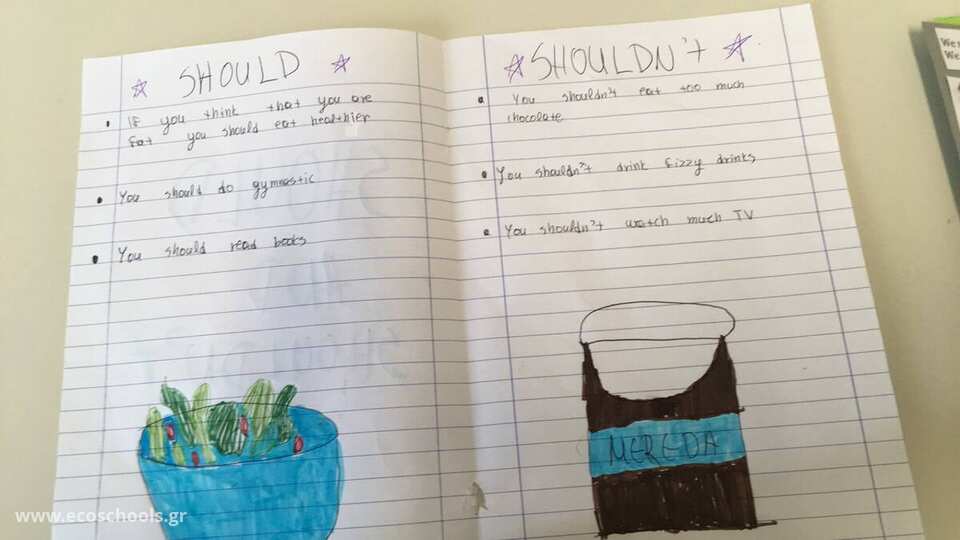 SHOULD
If you think that you are
fat you should eat healthier
You should do gymnastic
You should read books
SHOULDN't
You shouldn't eat too much
chocolate.
You shouldn't drink fizzy drinks
You shouldn't watch much TV
MEREDA
www.ecoschools.gr